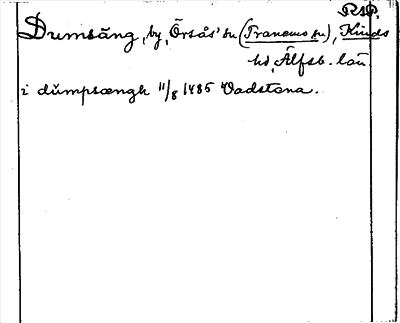 RSP.
Dumsäng, by, Örsås' sn (Tranemo sn), Kinds
hd, Älfsb. län.
i dümpsængh 11/8 1485 Vadstena.